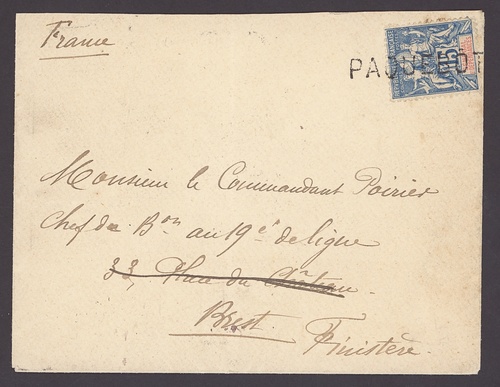 France
PAQUEBOT
15
Monsieur le Commandant Poirier
Chef de Bon au 19e de ligne
33, Place du Château
Brest. Finistère.